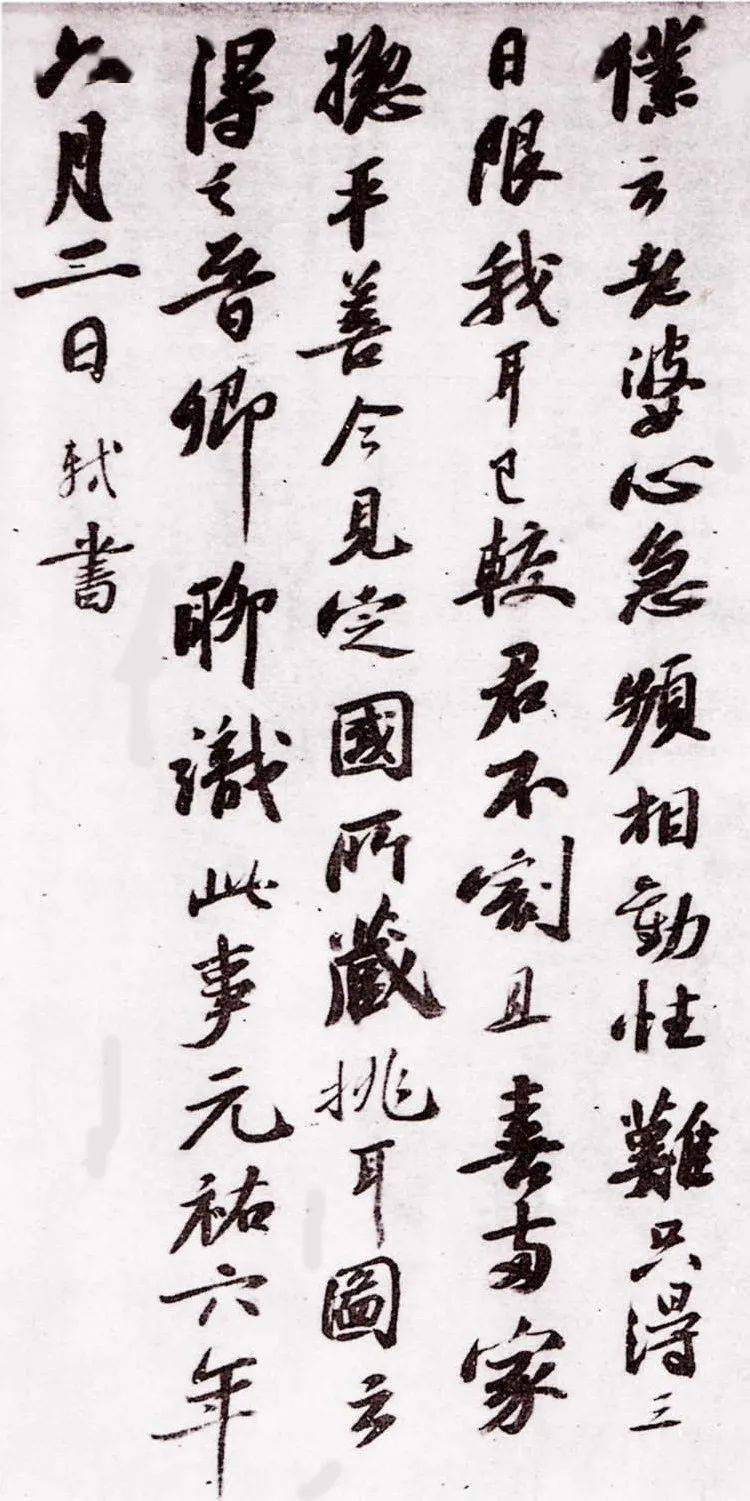 僕云老婆心急頻相勸性難只得三
日限我耳已較君不割且喜両家
揔平善今見定國所藏挑耳圖云
得之晋卿聊識此事元祐六年
六月二日軾書